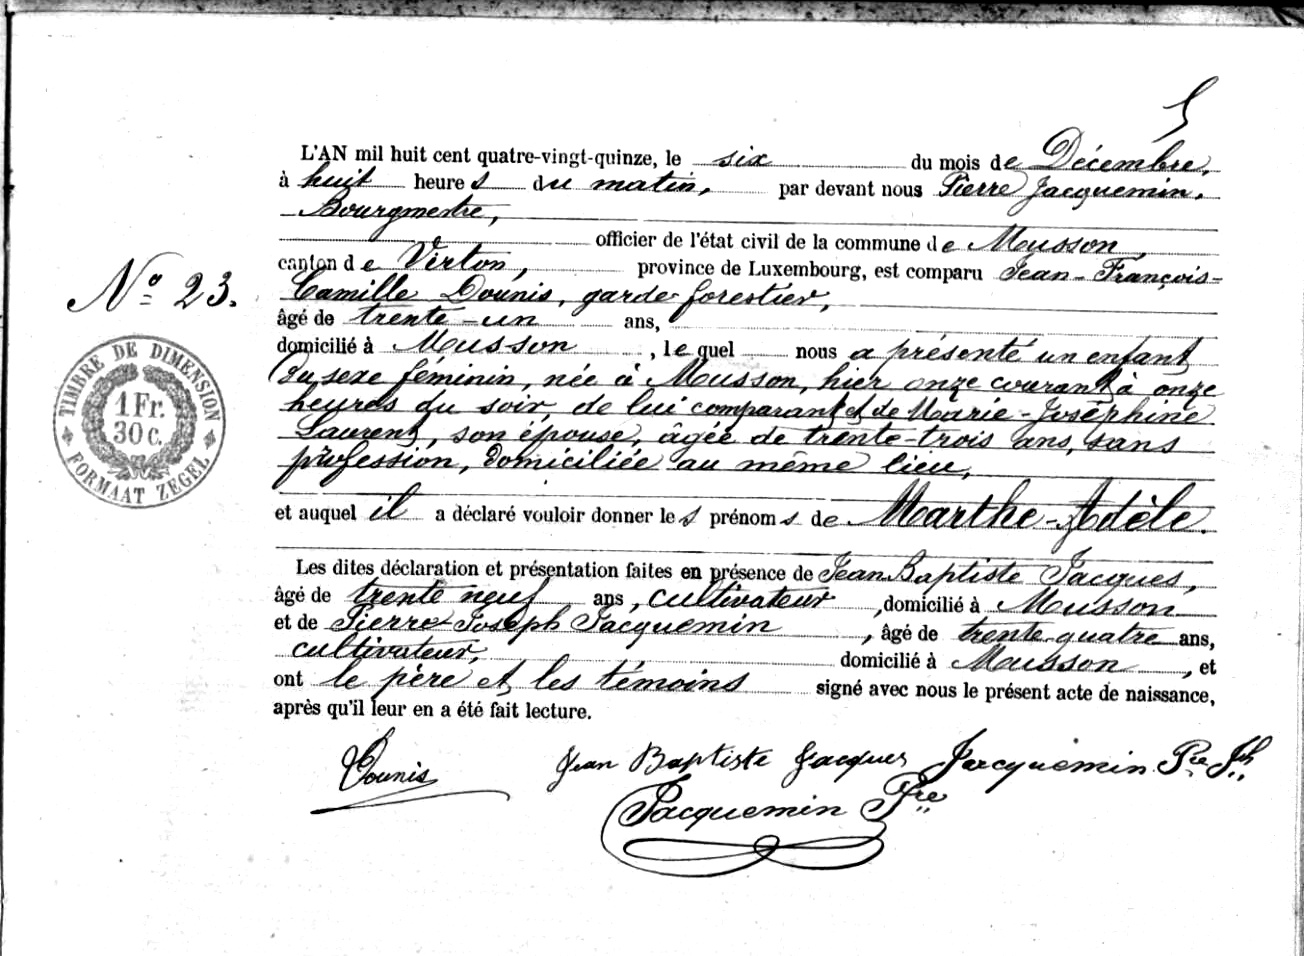 5
L'AN mil huit cent quatre-vingt-quinze, le six du mois de Décembre,
à huit heures du matin, par devant nous Pierre Jacquemin,
Bourgmestre,
officier de l'état civil de la commune de Musson
canton de Virton, province de Luxembourg, est comparu Jean-François-
Camille Dounis, garde forestier,
âgé de trente-un ans,
domicilié à Musson, lequel nous a présenté un enfant
du sexe féminin, née à Musson, hier onze courant à onze
heures du soir, de lui comparant et de Marie-Joséphine
Laurent, son épouse, âgée de trente-trois ans, sans
profession, domiciliée au même lieu,
et auquel il a déclaré vouloir donner les prénoms de Marthe-Adèle.
Les dites déclaration et présentation faites en présence de Jean Baptiste Jacques,
âgé de trente neuf ans, cultivateur, domicilié à Musson
et de Pierre-Joseph Jacquemin, âgé de trente-quatre ans,
cultivateur, domicilié à Musson, et
ont le père et les témoins signé avec nous le présent acte de naissance,
après qu'il leur en a été fait lecture.
Dounis Jean Baptiste Jacques Jacquemin Pre Jh
Jacquemin Pre
No 23.
TIMBRE DE DIMENSION
1 Fr.
30 c.
FORMAAT ZEGEL